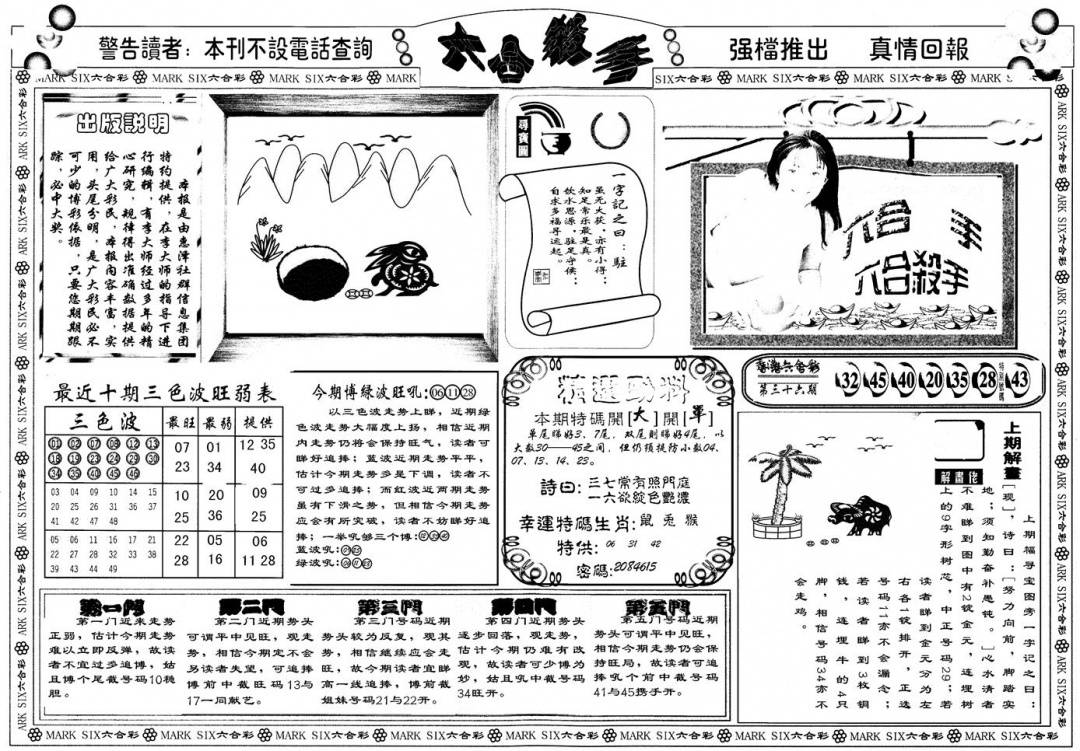 警告讀者：本刊不設電話查詢
六合殺手
强檔推出 真情回報
MARK SIX六合彩 MARK SIX六合彩 MARK SIX六合彩 MARK
SIX六合彩 MARK SIX六合彩 MARK SIX六合彩 MARK
出版説明
本报是由惠泽社群信息集团
特约提供，在李大师的指导下进
行编辑，有李大师经过多年的精
心研究，规律得出准确数据提供
给广大彩民，本报内容丰富，实
用，头尾分明，是广大彩民必不
可少的博彩依据，只要您期期跟
踪，必中大奖。
尋寶圖
一字記之曰：駐
虽无大获，亦有小得：
知足常乐最是真。
饮水思源，驻足守候：
自求多福寻运起。
六合 手
六合殺手
香港六合彩
第三十六期
32 45 40 20 35 28
特别號碼
43
最近十期三色波旺弱表
三色波 最旺 最弱 提供
01 02 07 08 12 13
18 19 23 24 29 30
34 35 40 45 46
07 01 12 35
23 34 40
03 04 09 10 14 15
20 25 26 31 36 37
41 42 47 48
10 20 09
25 36 25
05 06 11 16 17 21
22 27 28 32 33 38
39 43 44 49
22 05 06
28 16 11 28
今期博绿波旺吼:06 11 28
以三色波走势上睇，近期绿
色波走势大幅度上扬，相信近期
内走势仍将会保持旺气，读者可
睇好追捧；蓝波近期走势平平，
估计今期走势多是下调，读者不
可过多追捧；而红波近两期走势
虽有下滑之势，但相信今期走势
应会有所突破，读者不妨睇好追
捧；一举吼够三个博:
蓝波吼:
绿波吼:
精選勁料
本期特碼開[大]開[單]
单尾睇好3、7尾，双尾则睇好4尾，以
大数30——45之间，但仍须提防小数04、
07、13、14、23。
詩曰：三七常有照門庭
一六欲錠色艷濃
幸運特碼生肖:鼠 兎 猴
特供: 06 31 42
密碼:2084615
上期解畫
解畫佬
上期福寻宝图旁一字记之曰：
［现］，诗曰：［努力向前，脚踏实
地；须知勤奋补愚钝。］心水清者
不难睇到图中有2锭金元，连埋树
上的9字形树芯，中正号码29；若
读者睇到金元分为左
右各1锭排开，正选
号码11亦不会漏念；
若读者睇到3枚铜
钱，连埋牛的4只
脚，相信号码34亦不
会走鸡。
第一門
第一门近来走势
正弱，估计今期走势
难以立即反弹，故读
者不宜过多追捧，姑
且博个尾截号码10稳
胆。
第二門
第二门近期势头
可谓平中见旺，观走
势，相信今期定不会
另读者失望，可追捧
博前中截旺码13与
17一同献艺。
第三門
第三门号码近期
势头较为反复，观其
势，相信继续应会走
旺，故今期读者宜睇
高一线追捧，博前截
姐妹号码21与22齐开。
第四門
第四门近期势头
逐步回落，观走势，
估计今期仍难有改
观，故读者可少博为
妙，姑且吼中截号码
34旺开。
第五門
第五门号码近期
势头可谓平中见旺，
相信今期走势仍会保
持旺局，故读者可追
捧吼个前中截号码
41与45携手开。
MARK SIX六合彩 MARK SIX六合彩 MARK SIX六合彩 MARK SIX六合彩 MARK SIX六合彩 MARK SIX六合彩 MARK SIX六合彩 MARK SIX六合彩 MARK SIX六合彩